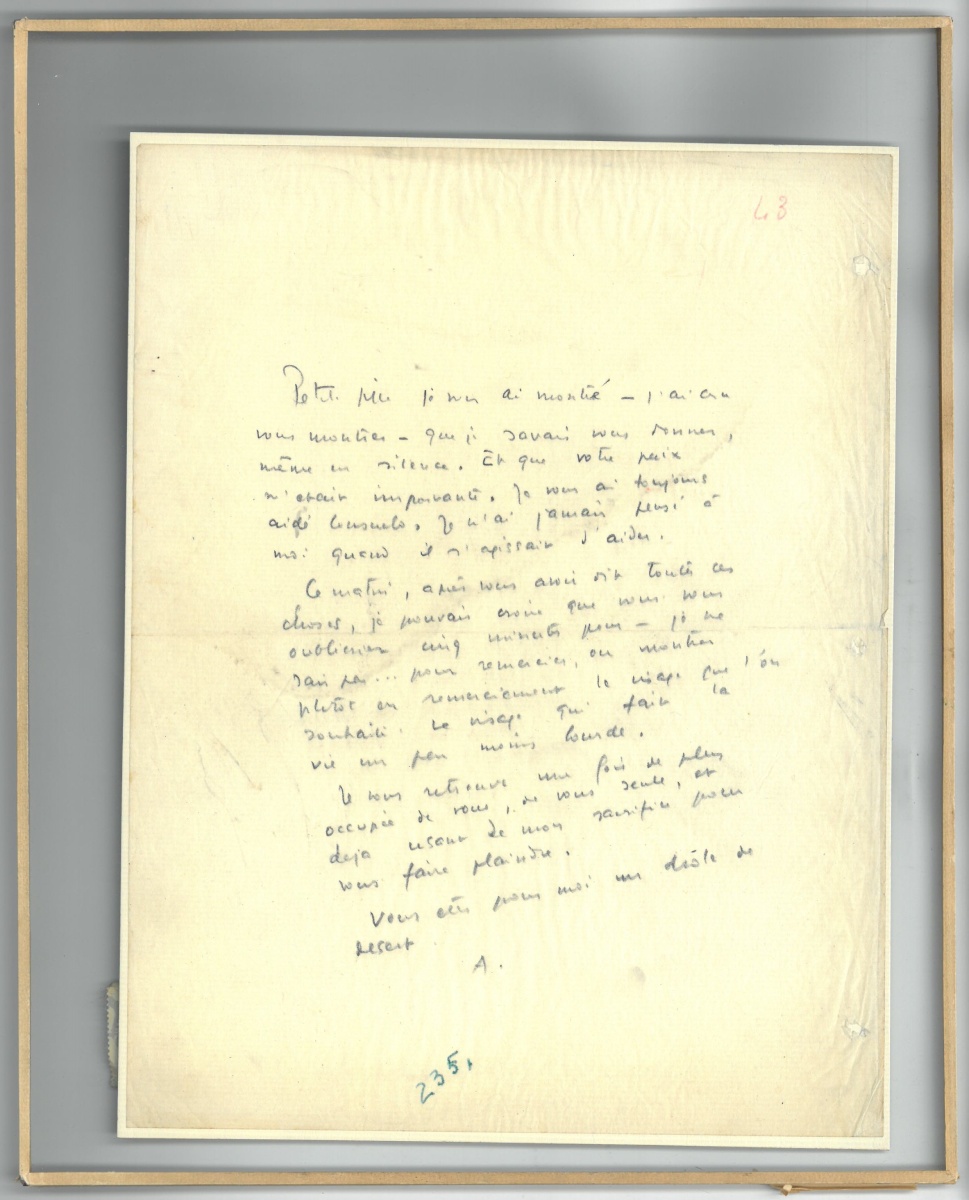 43
Petite fille je vous ai montré – j'ai cru
vous montrer – que je savais vous donner,
même en silence. Et que votre paix
m'était importante. Je vous ai toujours
aidé Consuelo. Je n'ai jamais pensé à
moi quand il s'agissait d'aider.
Ce matin, après vous avoir dit toutes ces
choses, je pouvais croire que vous vous
oublieriez cinq minutes pour – je ne
sais pas... pour remercier, ou montrer
plutôt en remerciement le visage que l'on
souhaite. Le visage qui fait la
vie un peu moins lourde.
Je vous retrouve une fois de plus
occupée de vous, de vous seule, et
deja usant de mon sacrifice pour
vous faire plaindre.
Vous êtes pour moi un drôle de
desert
A.
235.